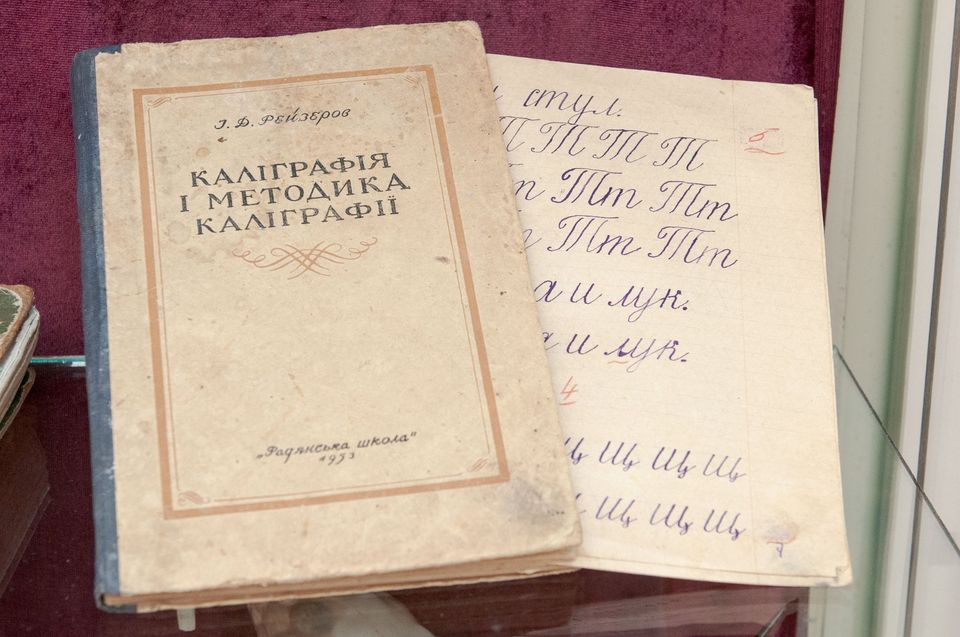 І. Д. Рейзеров
КАЛІГРАФІЯ
І МЕТОДИКА
КАЛІГРАФІЇ
„Радянська школа"
1953
стул.
Т Т Т Т
т Тт Тт
Тт Тт
а и лук.
а и лук.
4
Щ Щ Щ Щ
Щ Щ Щ